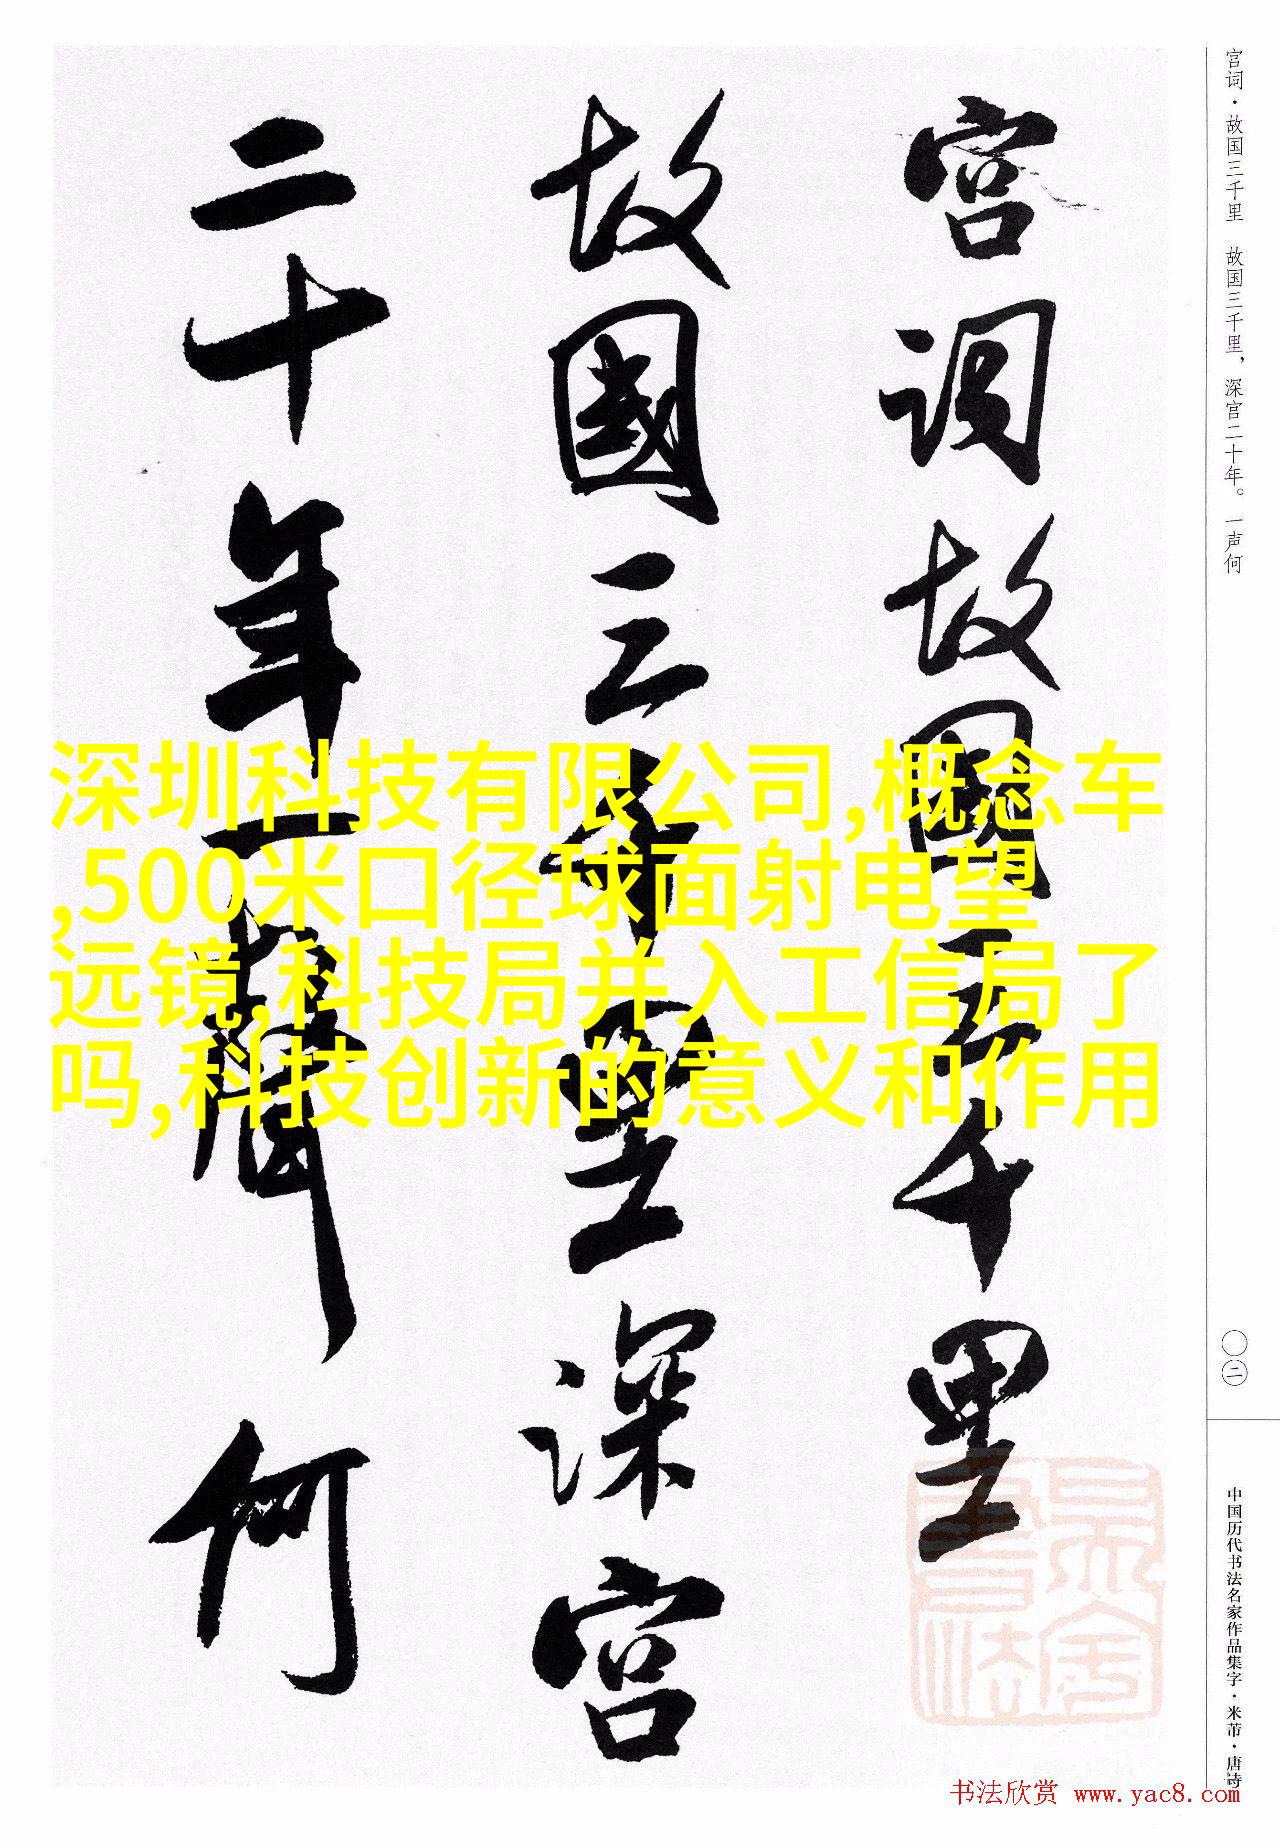 宫词·故国三千里 故国三千里，深宫二十年。一声何
宫词故国三千里
故國三千里深宫
二十年一聲何
深圳科技有限公司,概念车
,500米口径球面射电望
远镜,科技局并入工信局了
吗,科技创新的意义和作用
〇二
中国历代书法名家作品集字·米芾·唐诗
书法欣赏 www.yac8.com